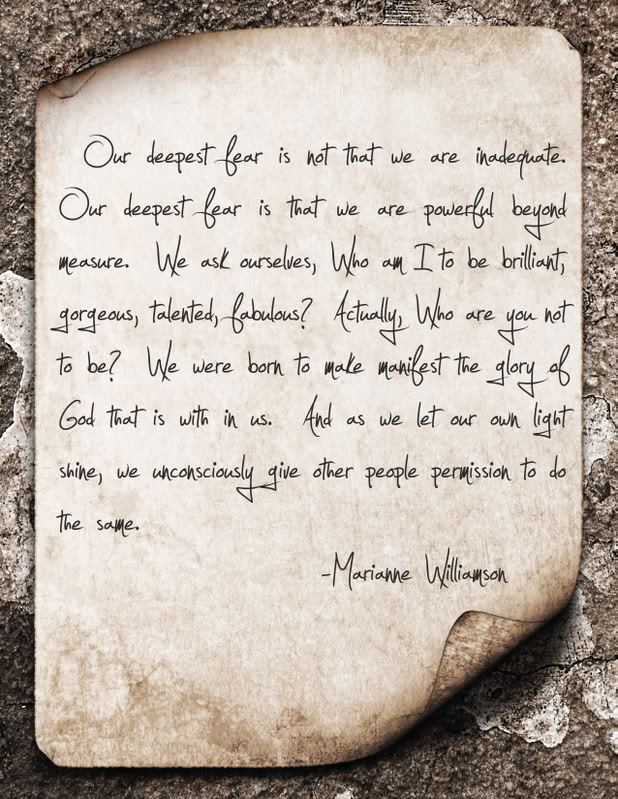 Our deepest fear is not that we are inadequate.
Our deepest fear is that we are powerful beyond
measure. We ask ourselves, Who am I to be brilliant,
gorgeous, talented, fabulous? Actually, Who are you not
to be? We were born to make manifest the glory of
God that is with in us. And as we let our own light
shine, we unconsciously give other people permission to do
the same.
-Marianne Williamson